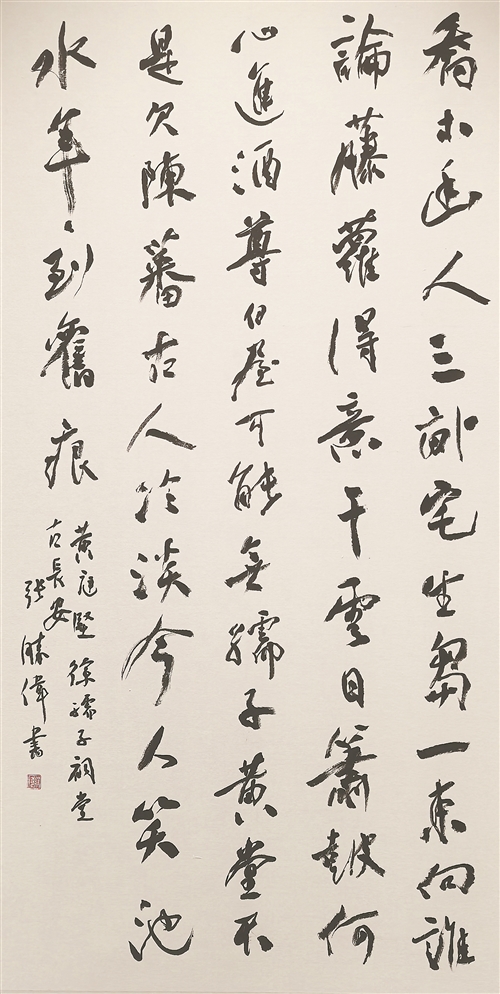 喬木幽人三畝宅生芻一束向誰
論藤蘿得意干雲日簫鼓何
心進酒尊白屋可能無孺子黃堂不
是欠陳蕃古人冷淡今人笑池
水年々到舊痕
黃庭堅 徐孺子祠堂
古長安
張勝偉書